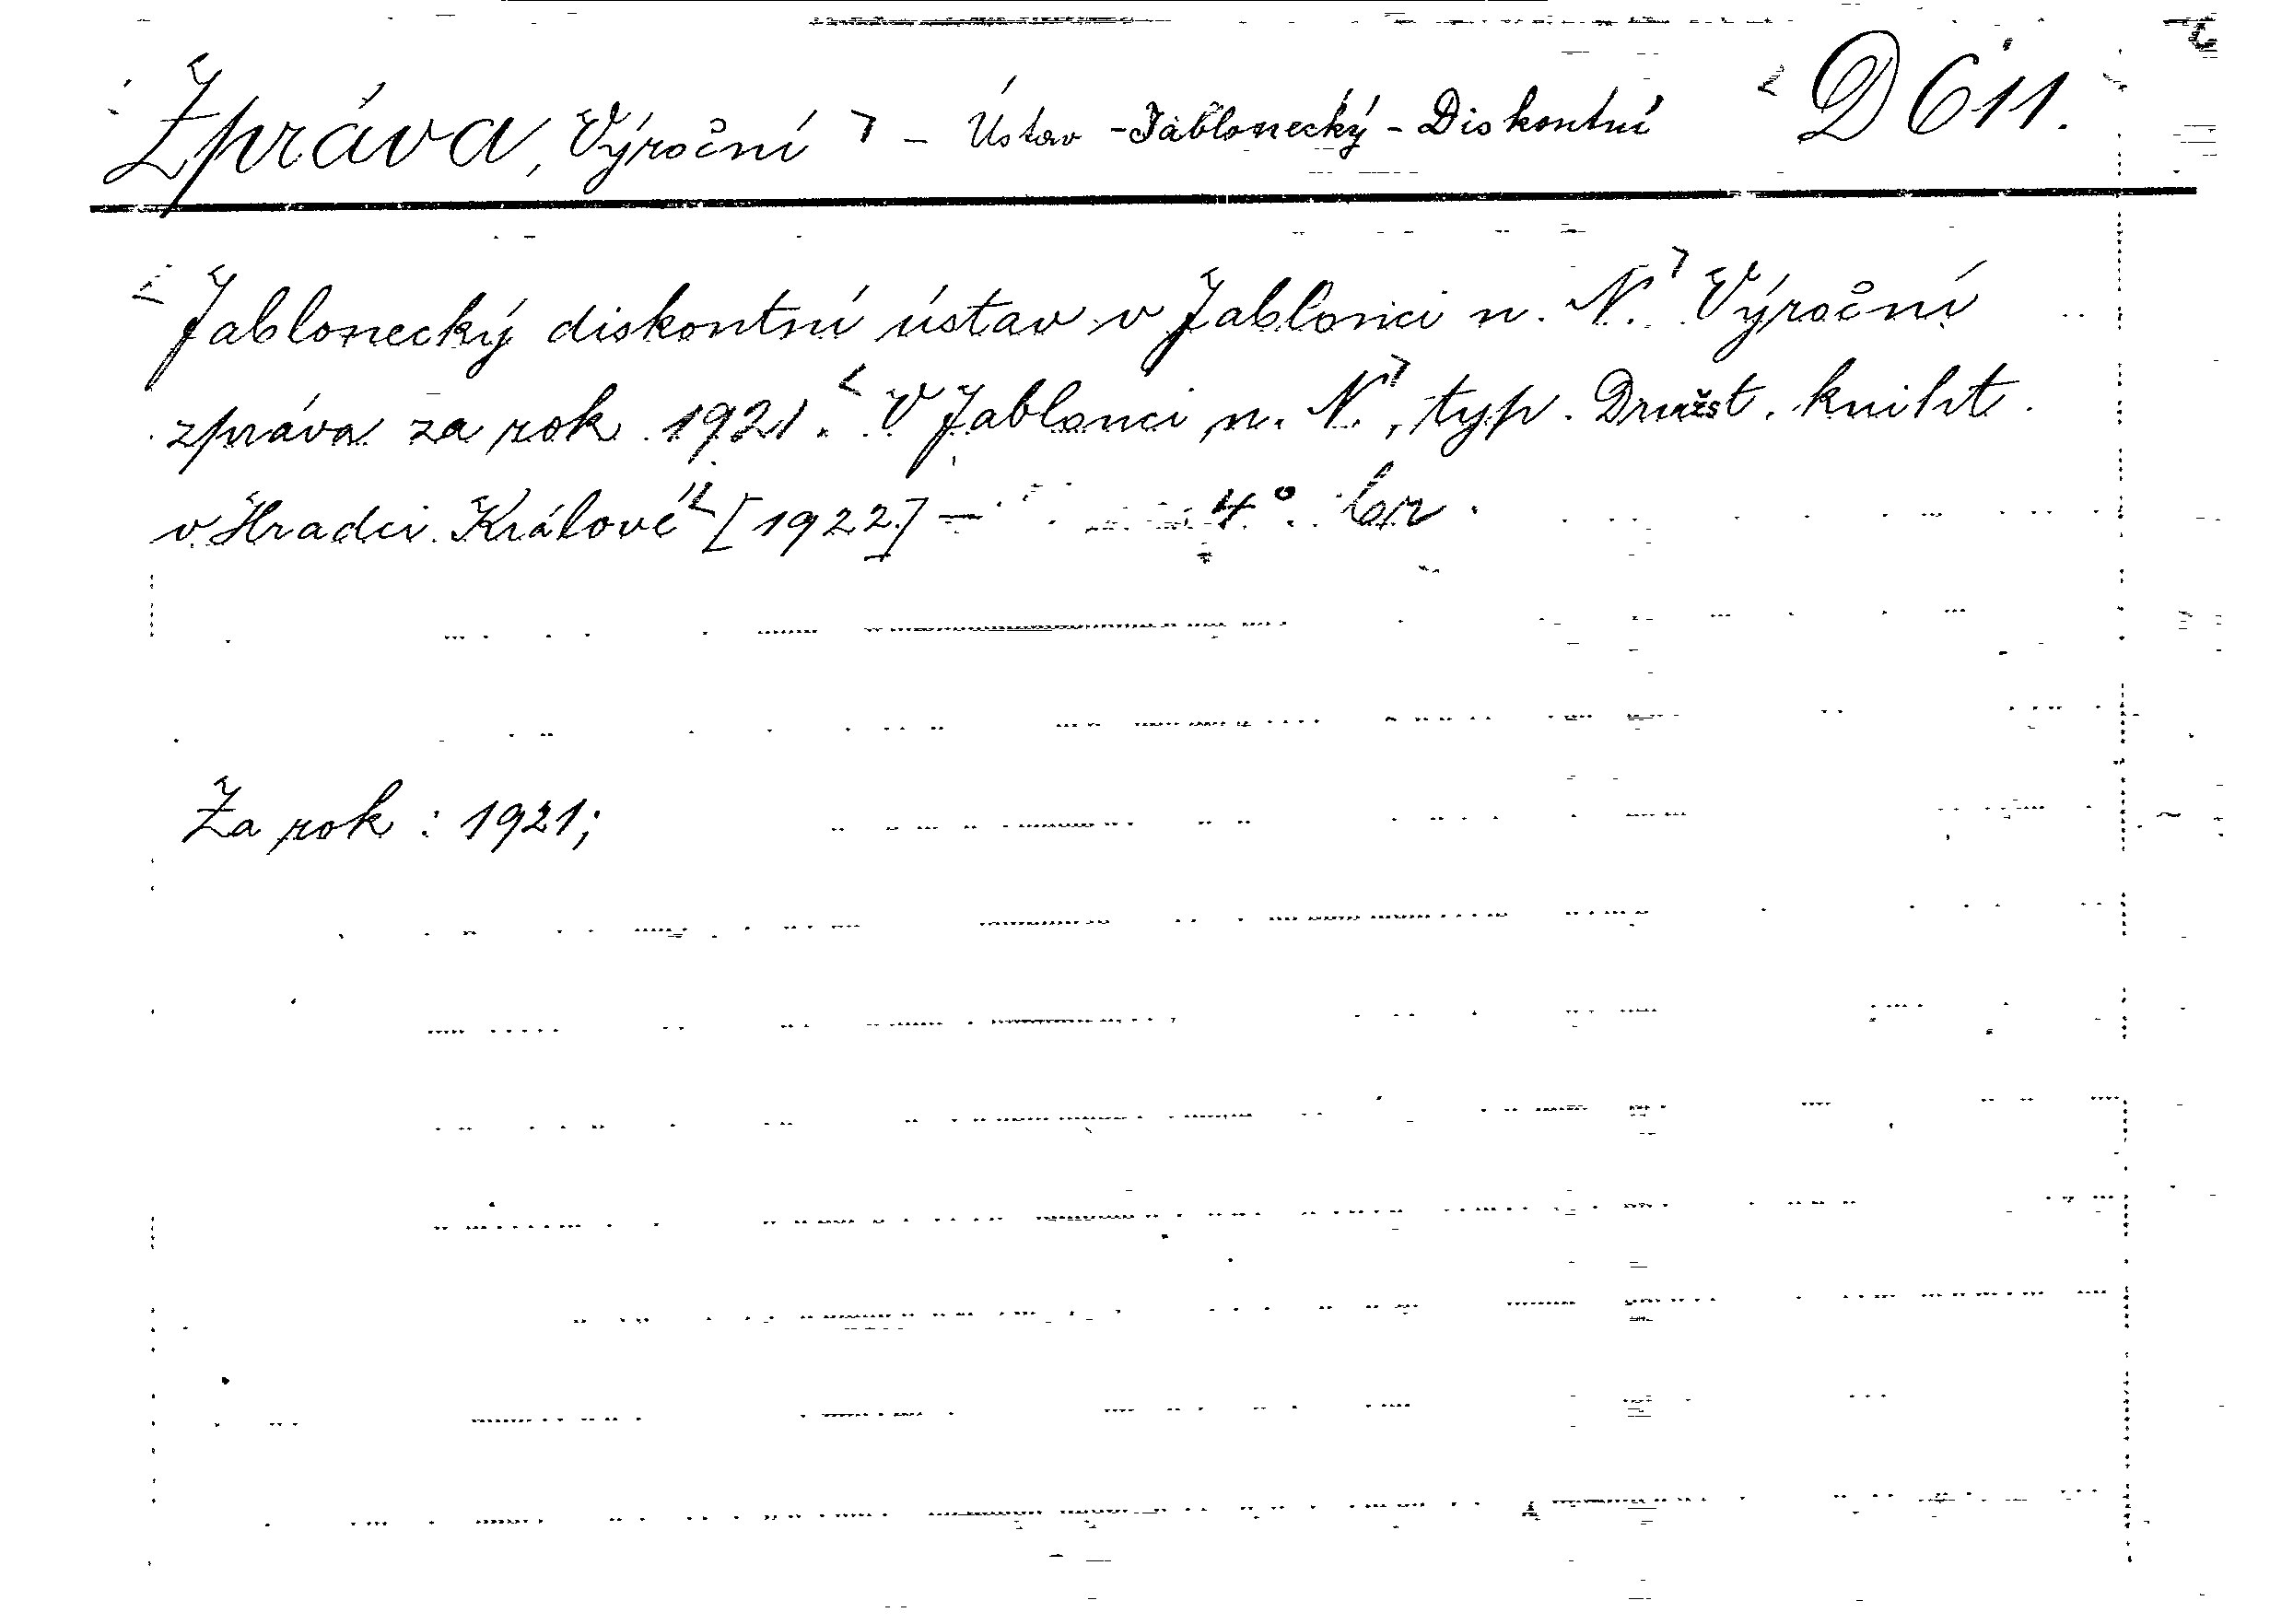 Zpráva, Výroční - Ústav - Jablonecký - Diskontní D 611.
Jablonecký diskontní ústav v Jablonci n. N. Výroční
zpráva za rok 1921. V Jablonci n. N., typ. Družst. kniht.
v Hradci Králové [1922] - 4°.
Za rok: 1921;